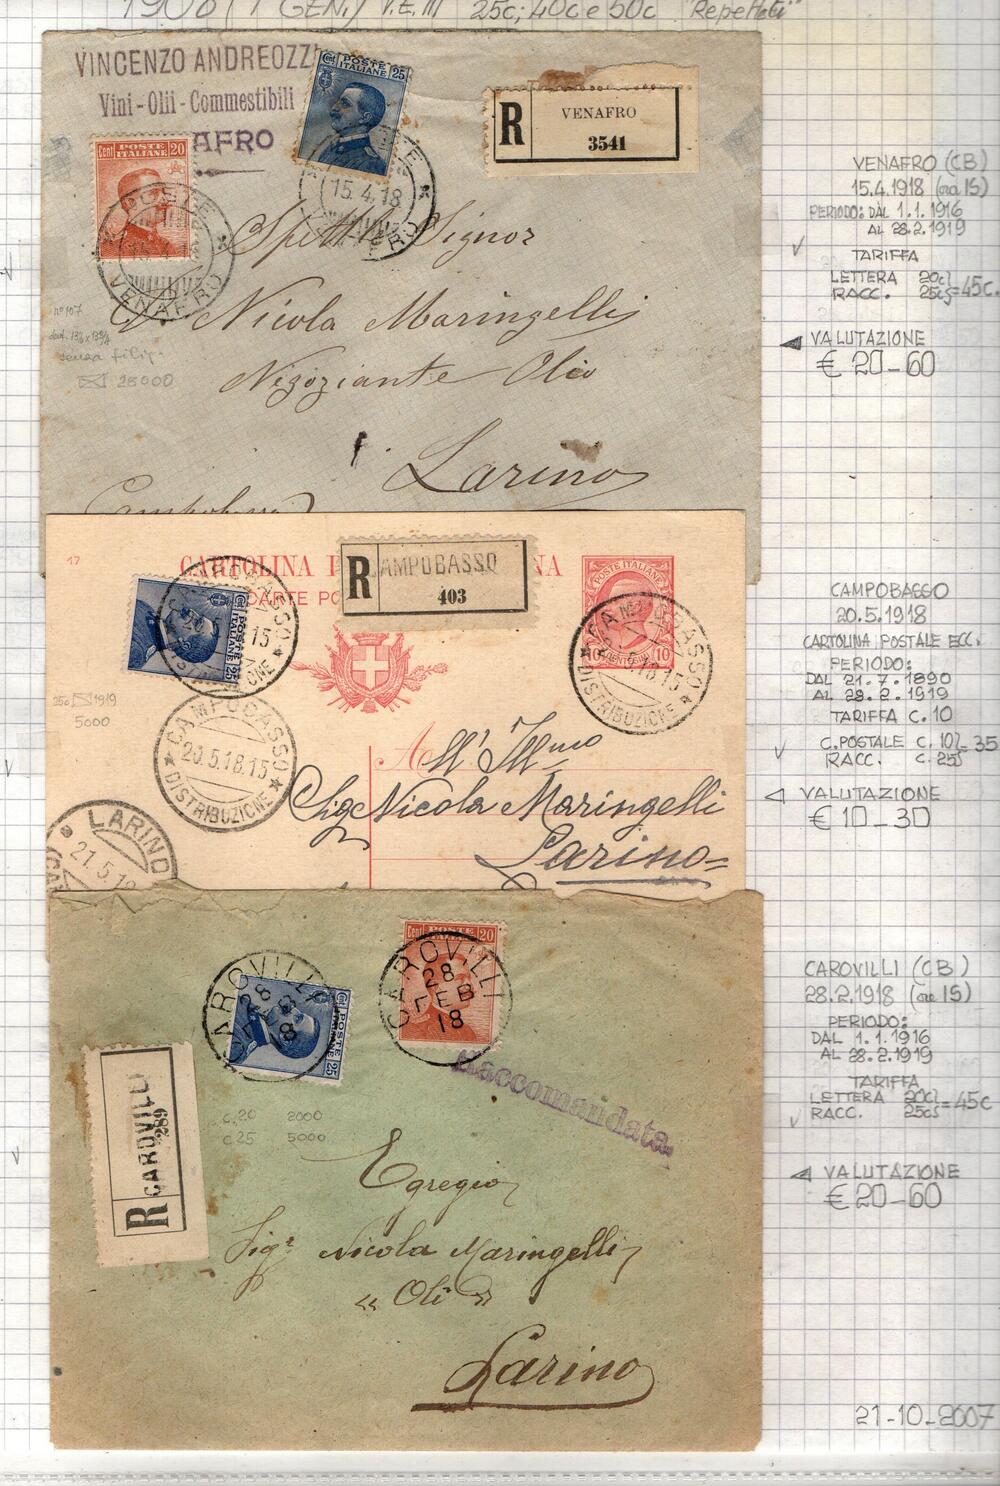 1908 (1 GEN.) V.E. III 25c; 40c e 50c "Repetteti"
VINCENZO ANDREOZZI
Vini - Olii - Commestibili
AFRO
Cent POSTE ITALIANE 20
Ct POSTE ITALIANE 25
R VENAFRO
3541
POSTE VENAFRO
15.4.18
Spett Signor
Nicola Maringelli
Negoziante Olio
Larino
Campobasso
n° 107
senza filig.
25000
VENAFRO (CB)
15.4.1918 (ora 15)
PERIODO: DAL 1.1.1916
AL 28.2.1919
TARIFFA
LETTERA 20c
RACC. 25c = 45c.
VALUTAZIONE
€ 20-60
17
CARTOLINA
NA
R CAMPOBASSO
403
POSTE ITALIANE
10 CENTESIMI 10
POSTE ITALIANE 25
CAMPOBASSO
20.5.18.15
DISTRIBUZIONE
25c 1919
5000
All' Illmo
Sig Nicola Maringelli
Larino
LARINO
21.5.18
CAMPOBASSO
20.5.1918
CARTOLINA POSTALE ECC.
PERIODO:
DAL 21.7.1890
AL 28.2.1919
TARIFFA C. 10
C. POSTALE C. 10 = 35
RACC. C. 25
VALUTAZIONE
€ 10-30
CAROVILLI
28
FEB
18
POSTE ITALIANE 25
Cent POSTE ITALIANE 20
CAROVILLI
28
FEB
18
Raccomandata
R CAROVILLI
289
c.20 2000
c.25 5000
Egregio
Sigr Nicola Maringelli
« Oli »
Larino
CAROVILLI (CB)
28.2.1918 (ore 15)
PERIODO:
DAL 1.1.1916
AL 28.2.1919
TARIFFA
LETTERA 20c
RACC. 25c = 45c
VALUTAZIONE
€ 20-60
21-10-2007